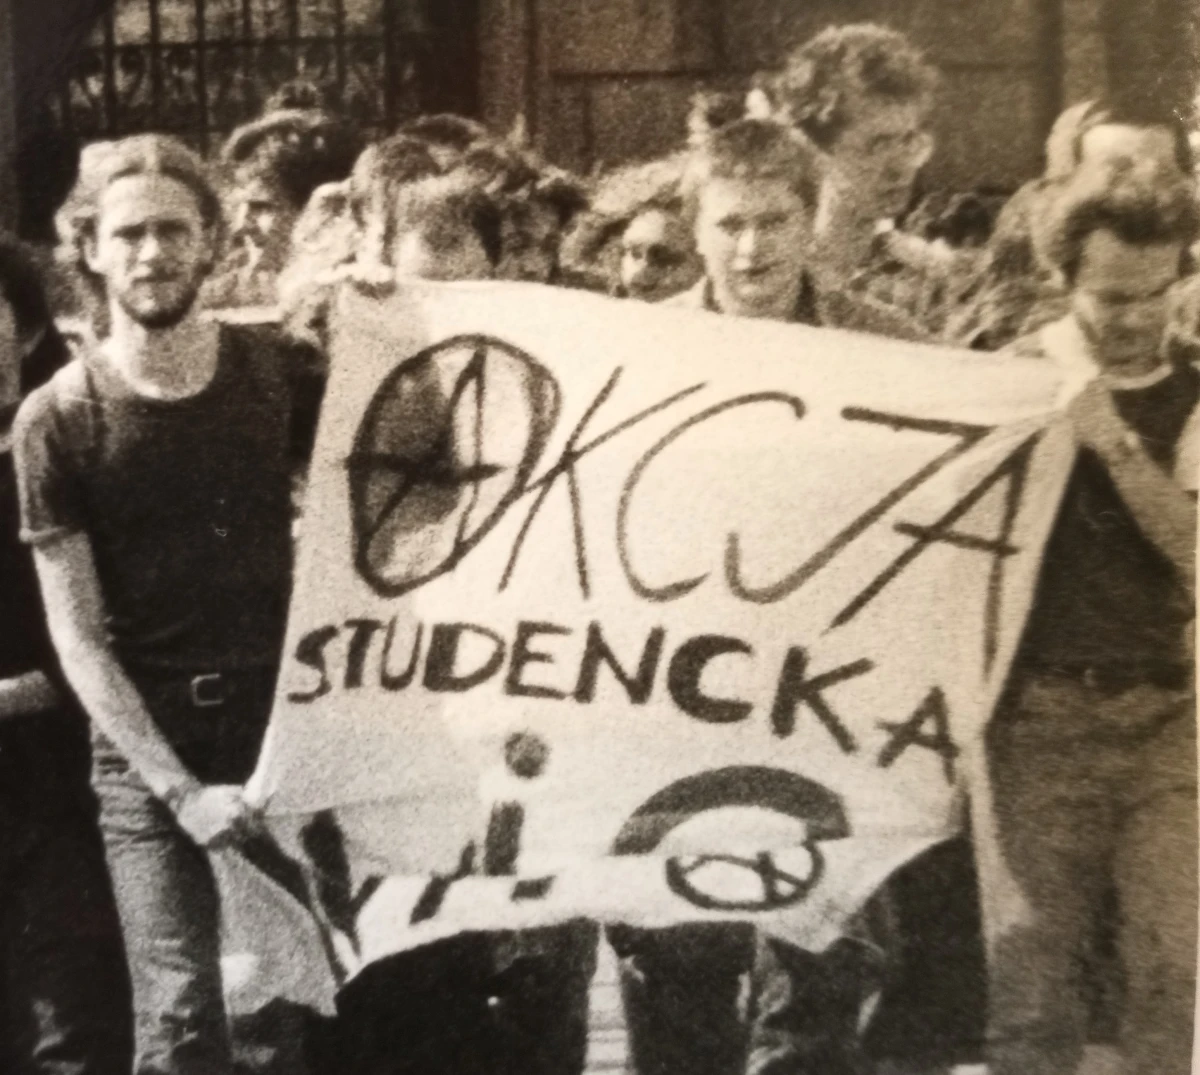 AKCJA
STUDENCKA
WiG